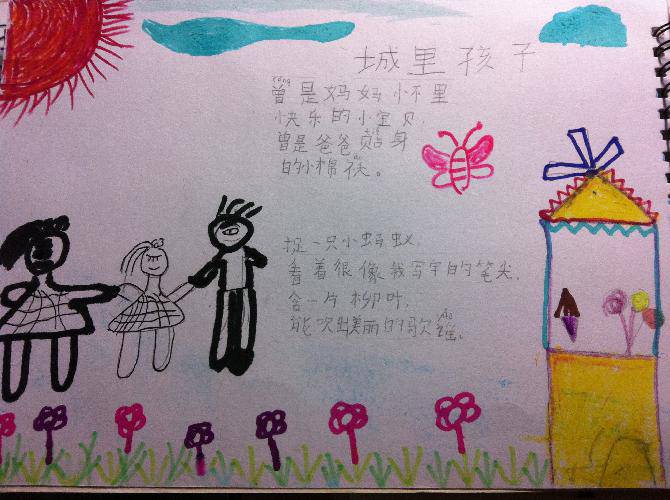 城里孩子
曾是妈妈怀里
快乐的小宝贝,
曾是爸爸贴身
的小棉袄。
捉一只小蚂蚁,
看着很像我写字的笔尖,
含一片柳叶,
能吹出美丽的歌谣。